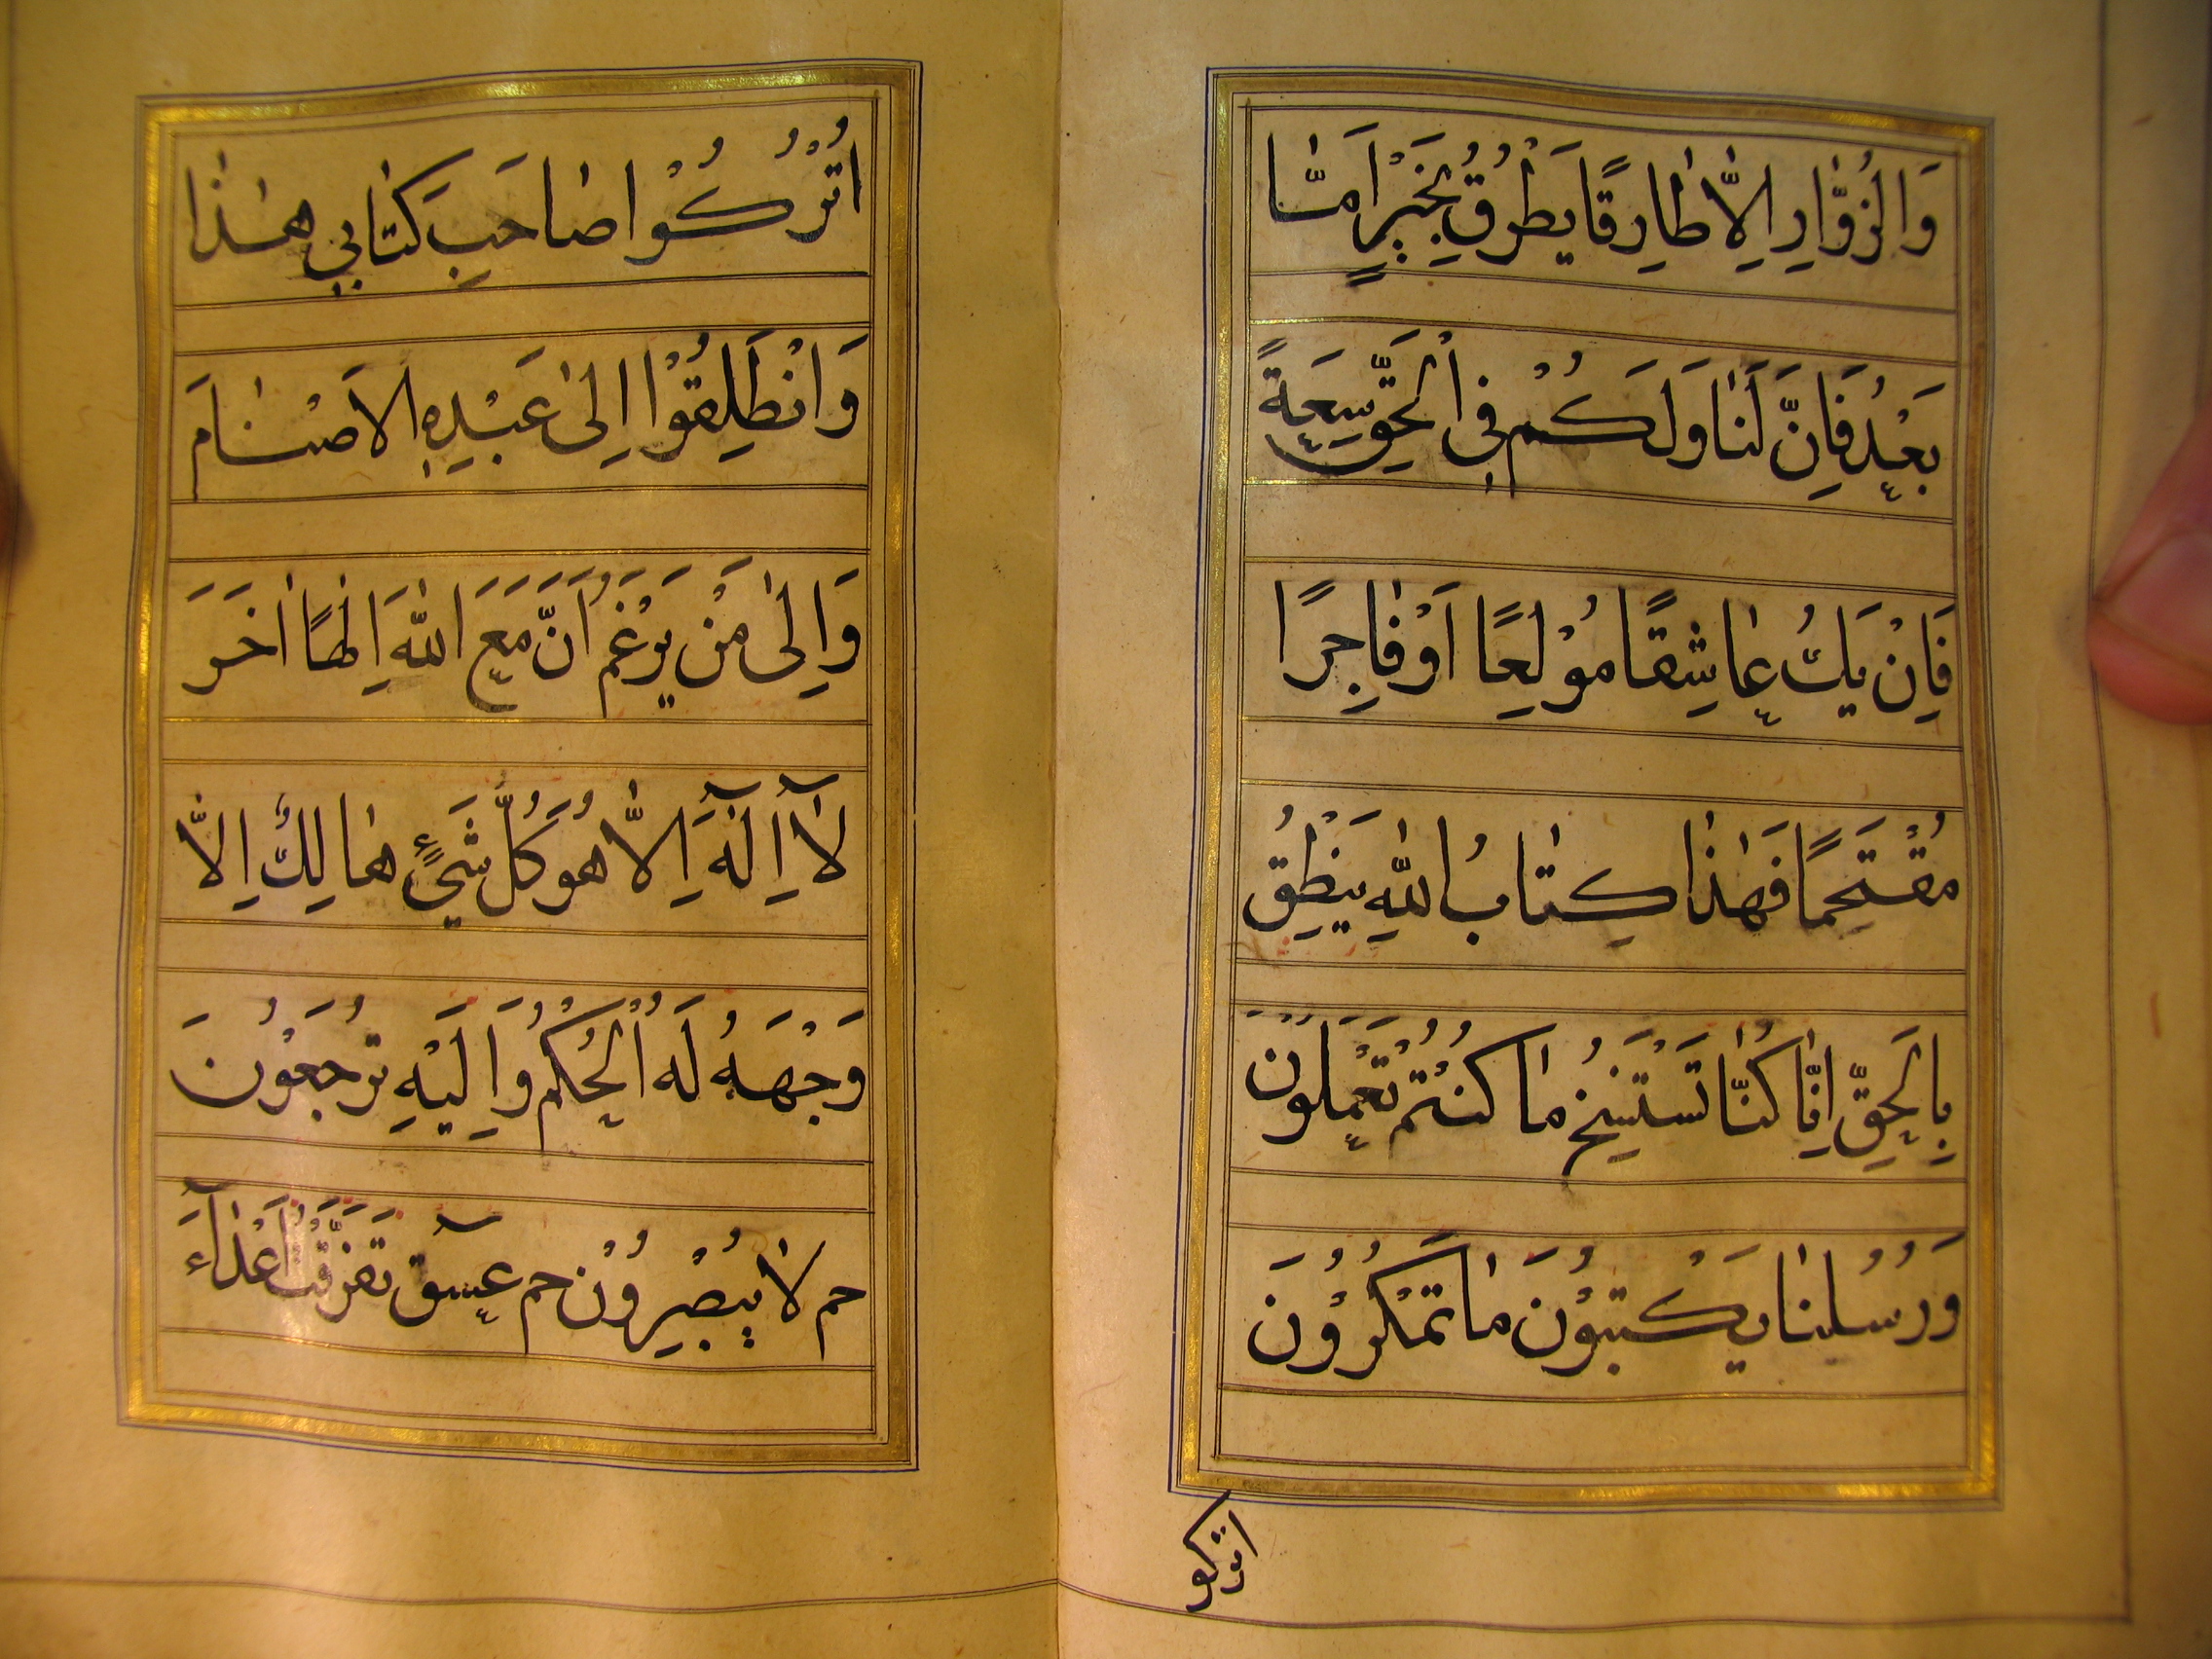 وَالزُوّٰارِ اِلاّٰ طٰارِقًا يَطْرُقُ بِخَيْرٍ اَمّٰا
بَعْدُ فَاِنَّ لَنٰا وَلَكُمْ فِي الْحَقِّ سِعَةً
فَاِنْ يَكُ عٰاشِقًا مُوْلِعًا اَوْ فٰاجِرًا
مُقْتَحِمًا فَهٰذٰا كِتٰابُ اللّٰهِ يَنْطِقُ
بِالْحَقِّ اِنّٰا كُنّٰا نَسْتَنْسِخُ مٰا كُنْتُمْ تَعْمَلُوْنَ
وَرُسُلُنٰا يَكْتُبُوْنَ مٰا تَمْكُرُوْنَ
اتركو
اُتْرُكُوْا صٰاحِبَ كِتٰابِي هٰذٰا
وَانْطَلِقُوْا اِلىٰ عَبَدِهِ الاَصْنٰامَ
وَاِلىٰ مَنْ يَزْعَمُ اَنَّ مَعَ اللّٰهَ اِلٰهًا اٰخَرَ
لآٰ اِلٰهَ اِلاّٰ هُوَ كُلُّ شَيْءٍ هٰالِكٌ اِلاّٰ
وَجْهَهُ لَهُ الْحُكْمُ وَاِلَيْهِ تُرْجَعُوْنَ
حم لاٰ يُبْصِرُوْن حم عسٓق تَفَرَّقَتْ اَعْدٰآءَ